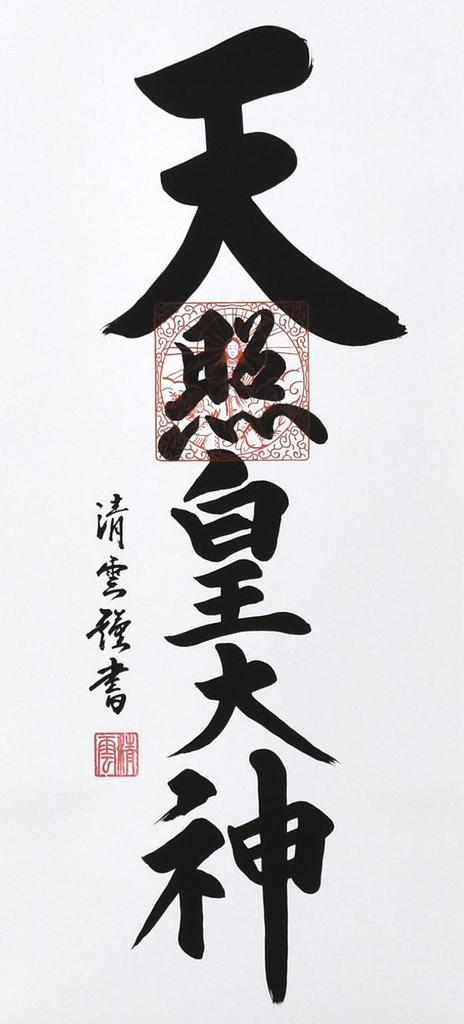 天照皇大神
清雲謹書
清雲